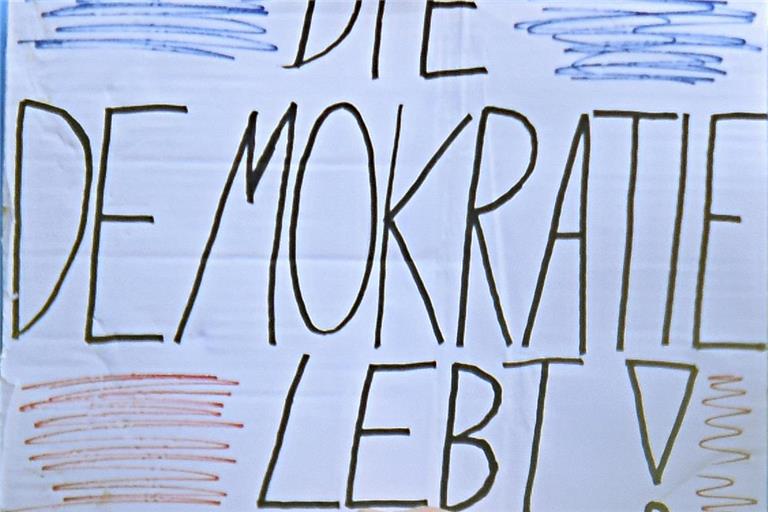 DIE
DEMOKRATIE
LEBT!